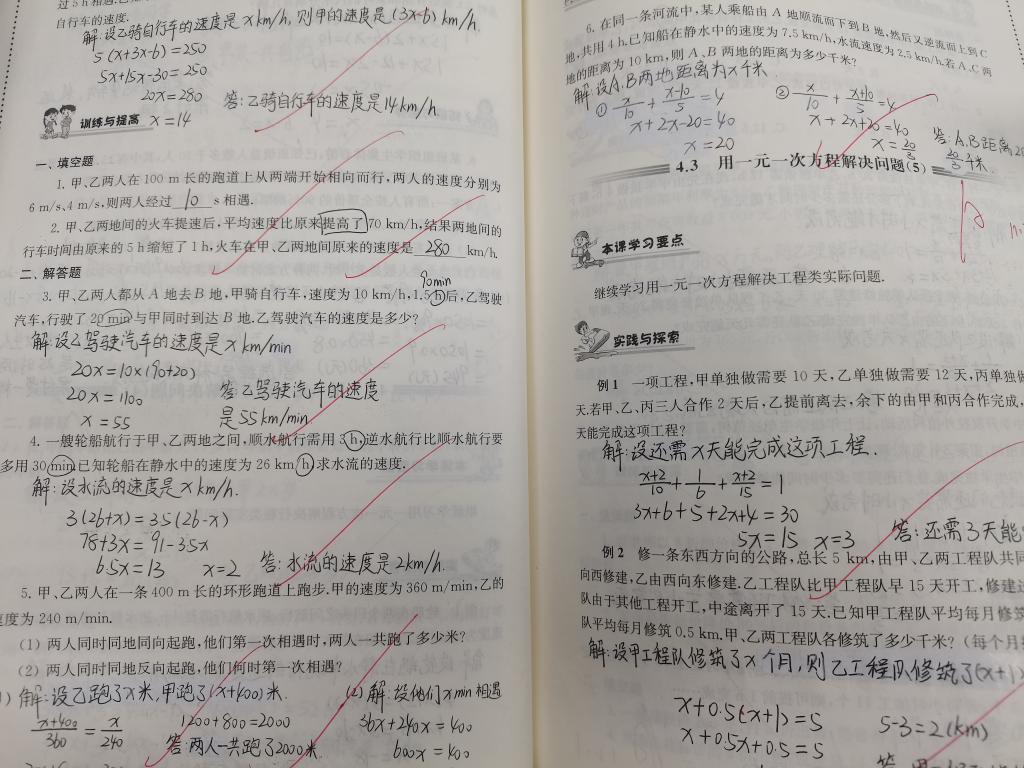 自行车的速度.
解:设乙骑自行车的速度是xkm/h,则甲的速度是(3x-6)km/h.
5(x+3x-6)=250
5x+15x-30=250
20x=280
答:乙骑自行车的速度是14km/h
x=14
训练与提高
一、填空题
1. 甲、乙两人在 100 m 长的跑道上从两端开始相向而行,两人的速度分别为
6 m/s、4 m/s,则两人经过 10 s 相遇.
2. 甲、乙两地间的火车提速后,平均速度比原来提高了 70 km/h,结果两地间的
行车时间由原来的 5 h 缩短了 1 h,火车在甲、乙两地间原来的速度是 280 km/h.
二、解答题
90min
3. 甲、乙两人都从 A 地去 B 地,甲骑自行车,速度为 10 km/h,1.5 h 后,乙驾驶
汽车,行驶了 20 min 与甲同时到达 B 地.乙驾驶汽车的速度是多少?
解 设乙驾驶汽车的速度是x km/min
20x=10×(90+20)
20x=1100
x=55
答:乙驾驶汽车的速度
是55km/min
4. 一艘轮船航行于甲、乙两地之间,顺水航行需用 3 h,逆水航行比顺水航行要
多用 30 min.已知轮船在静水中的速度为 26 km/h,求水流的速度.
解:设水流的速度是x km/h.
3(26+x)=3.5(26-x)
78+3x=91-3.5x
6.5x=13 x=2 答:水流的速度是2km/h.
5. 甲、乙两人在一条 400 m 长的环形跑道上跑步.甲的速度为 360 m/min,乙的
速度为 240 m/min.
(1) 两人同时同地同向起跑,他们第一次相遇时,两人一共跑了多少米?
(2) 两人同时同地反向起跑,他们何时第一次相遇?
解:设乙跑了x米,甲跑了(x+400)米.
x+400/360=x/240
1200+800=2000
答:两人一共跑了2000米.
(2)解:设他们xmin相遇
360x+240x=400
600x=400
6. 在同一条河流中,某人乘船由 A 地顺流而下到 B 地,然后又逆流而上到 C
地,共用 4 h.已知船在静水中的速度为 7.5 km/h,水流速度为 2.5 km/h.若 A、C 两
地的距离为 10 km,则 A、B 两地的距离为多少千米?
解:设A.B两地距离为x千米
① x/10+x-10/5=4
x+2x-20=40
x=20
② x/10+x+10/5=4
x+2x+20=40
x=20/3
答:A.B距离20
20/3千米.
4.3 用一元一次方程解决问题(5)
本课学习要点
继续学习用一元一次方程解决工程类实际问题.
实践与探索
例 1 一项工程,甲单独做需要 10 天,乙单独做需要 12 天,丙单独做
天.若甲、乙、丙三人合作 2 天后,乙提前离去,余下的由甲和丙合作完成,
天能完成这项工程?
解:设还需x天能完成这项工程.
x+2/10+1/6+x+2/15=1
3x+6+5+2x+4=30
5x=15 x=3 答:还需3天能
例 2 修一条东西方向的公路,总长 5 km,由甲、乙两工程队共同
向西修建,乙由西向东修建.乙工程队比甲工程队早 15 天开工,修建过
队由于其他工程开工,中途离开了 15 天.已知甲工程队平均每月修筑
队平均每月修筑 0.5 km.甲、乙两工程队各修筑了多少千米? (每个月按
解:设甲工程队修筑了x个月,则乙工程队修筑了(x+1)
x+0.5(x+1)=5
x+0.5x+0.5=5
5-3=2(km)